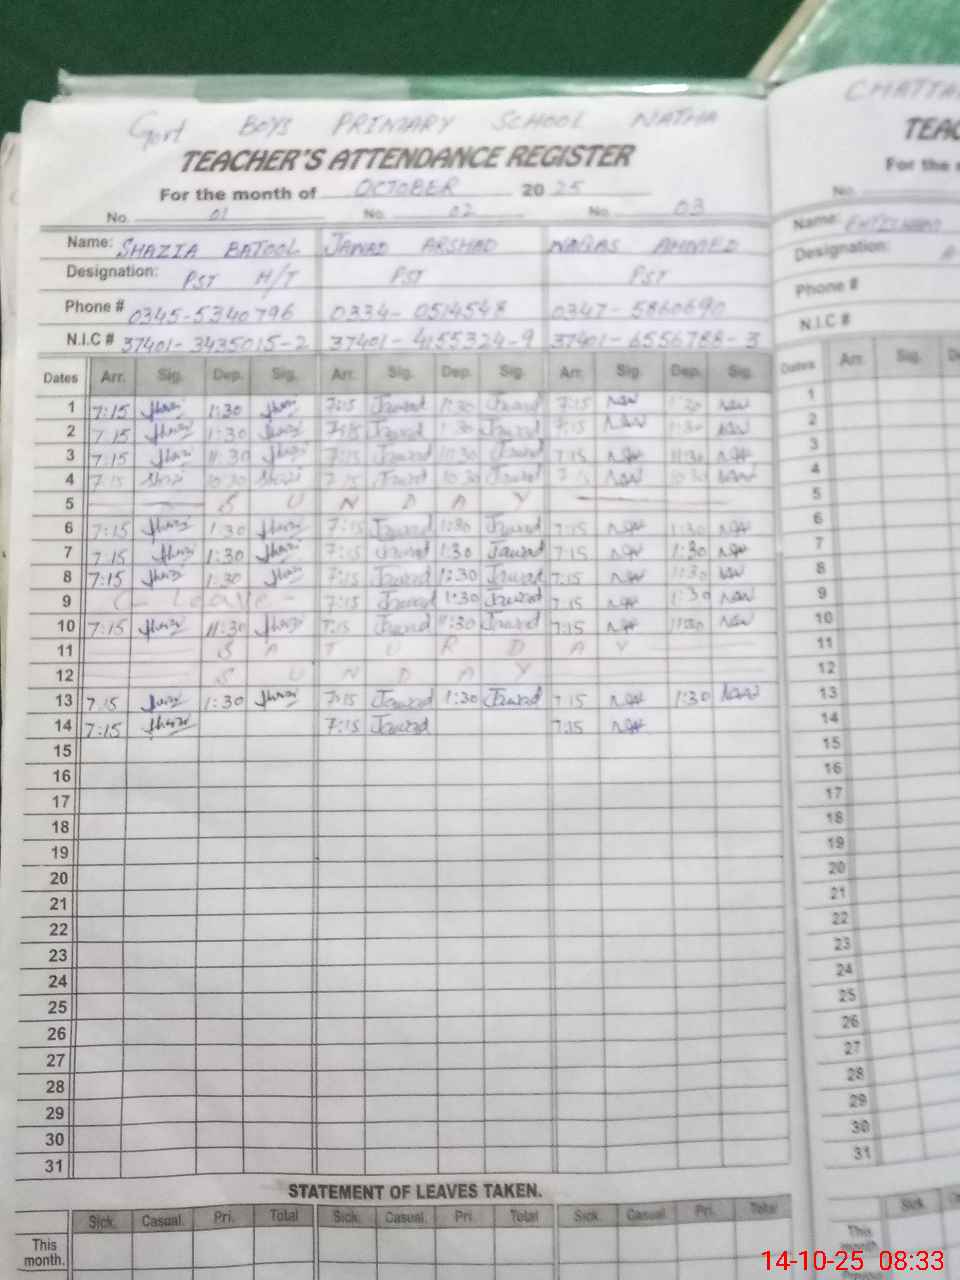 Govt BOYS PRIMARY SCHOOL NATHA
TEACHER'S ATTENDANCE REGISTER
For the month of OCTOBER 2025
No. 01 No. 02 No. 03
Name: SHAZIA BATOOL JAWAD ARSHAD AHMED
Designation: PST H/T PST PST
Phone # 0345-5340796 0334-0514548 0347-5860690
N.I.C # 37401-3435015-2 37401-4155324-9 37401-6556788-3
Dates Arr. Sig. Dep. Sig. Arr. Sig. Dep. Sig. Arr. Sig. Dep. Sig.
1 7:15 1:30 7:15 Jawad 1:30 Jawad 7:15 1:30
2 7:15 1:30 7:15 Jawad 1:30 Jawad 7:15 1:30
3 7:15 11:30 7:15 Jawad 11:30 Jawad 7:15 11:30
4 7:15 10:30 7:15 Jawad 10:30 Jawad 7:15 10:30
5 S U N D A Y
6 7:15 1:30 7:15 Jawad 1:30 Jawad 7:15 1:30
7 7:15 1:30 7:15 Jawad 1:30 Jawad 7:15 1:30
8 7:15 1:30 7:15 Jawad 1:30 Jawad 7:15 1:30
9 C - Leave - 7:15 Jawad 1:30 Jawad 7:15 1:30
10 7:15 11:30 7:15 Jawad 11:30 Jawad 7:15 11:30
11 S A T U R D A Y
12 S U N D A Y
13 7:15 1:30 7:15 Jawad 1:30 Jawad 7:15 1:30
14 7:15 7:15 Jawad 7:15
15
16
17
18
19
20
21
22
23
24
25
26
27
28
29
30
31
STATEMENT OF LEAVES TAKEN.
Sick. Casual. Pri. Total Sick. Casual. Pri. Total Sick. Casual. Pri. Total
This
month.
CHATTA
TEAC
For the
No.
Name:
Designation:
Phone #
N.I.C #
Dates Arr. Sig.
1
2
3
4
5
6
7
8
9
10
11
12
13
14
15
16
17
18
19
20
21
22
23
24
25
26
27
28
29
30
31
Sick.
This
month
14-10-25 08:33